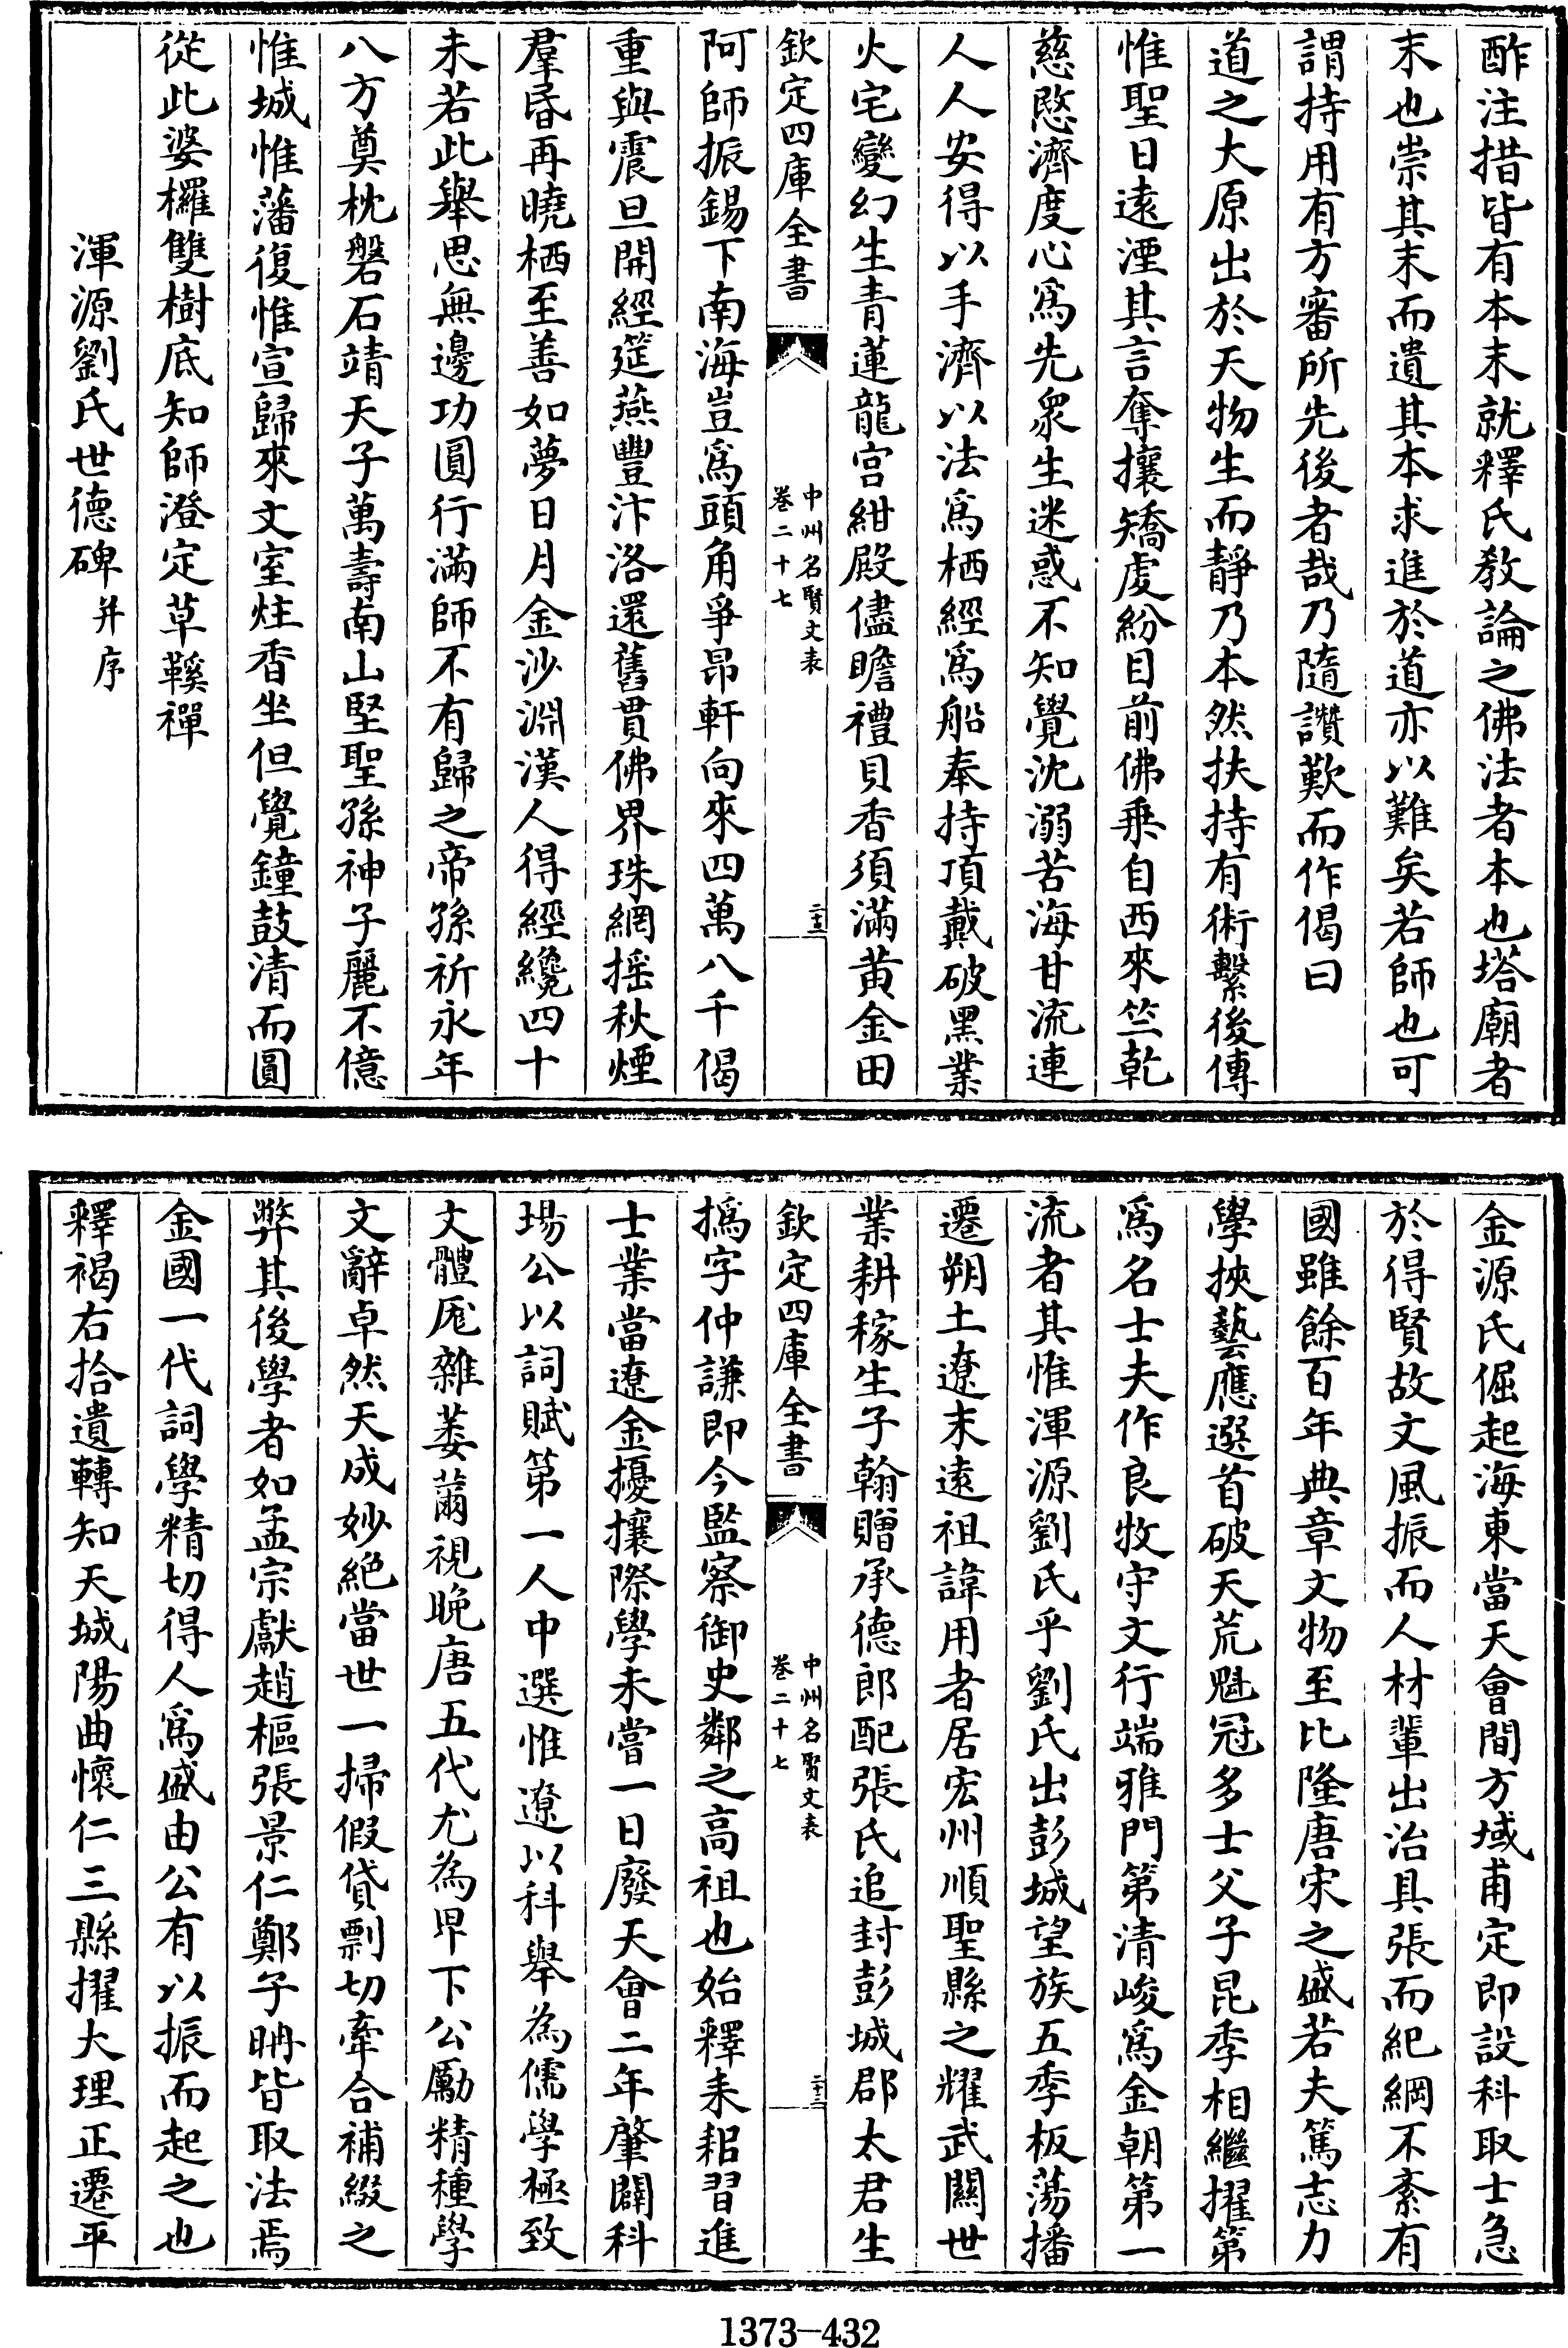 酢注措皆有本末就釋氏教論之佛法者本也塔廟者
末也崇其末而遺其本求進於道亦以難矣若師也可
謂持用有方審所先後者哉乃隨讚歎而作偈曰
道之大原出於天物生而靜乃本然扶持有術繫後傳
惟聖日遠湮其言奪攘矯虔紛目前佛乗自西來竺乾
慈愍濟度心爲先衆生迷惑不知覺沈溺苦海甘流連
人人安得以手濟以法爲栖經爲船奉持頂戴破黑業
火宅變幻生青蓮龍宫紺殿儘瞻禮貝香須滿黄金田
欽定四庫全書
中州名賢文表
卷二十七
二十三
阿師振錫下南海豈爲頭角爭昂軒向來四萬八千偈
重與震旦開經筵燕豐汴洛還舊貫佛界珠網揺秋煙
羣昏再曉栖至善如夢日月金沙淵漢人得經纔四十
未若此舉思無邊功圓行滿師不有歸之帝孫祈永年
八方奠枕磐石靖天子萬壽南山堅聖孫神子麗不億
惟城惟藩復惟宣歸來文室炷香坐但覺鐘鼓清而圓
從此婆欏雙樹底知師澄定草鞵禪
渾源劉氏世德碑并序
金源氏倔起海東當天會間方域甫定即設科取士急
於得賢故文風振而人材輩出治具張而紀綱不紊有
國雖餘百年典章文物至比隆唐宋之盛若夫篤志力
學挾藝應選首破天荒魁冠多士父子昆季相繼擢第
爲名士夫作良牧守文行端雅門第清峻爲金朝第一
流者其惟渾源劉氏乎劉氏出彭城望族五季板蕩播
遷朔土遼末遠祖諱用者居宏州順聖縣之耀武關世
業耕稼生子翰贈承德郎配張氏追封彭城郡太君生
欽定四庫全書
中州名賢文表
卷二十七
二十三
撝字仲謙即今監察御史鄰之高祖也始釋耒耜習進
士業當遼金擾攘際學未嘗一日廢天會二年肇闢科
場公以詞賦第一人中選惟遼以科舉為儒學極致
文體厖雜萎薾視晚唐五代尤為卑下公勵精種學
文辭卓然天成妙絕當世一掃假貸剽切牽合補綴之
弊其後學者如孟宗獻趙樞張景仁鄭子聃皆取法焉
金國一代詞學精切得人爲盛由公有以振而起之也
釋褐右拾遺轉知天城陽曲懷仁三縣擢大理正遷平
1373-432